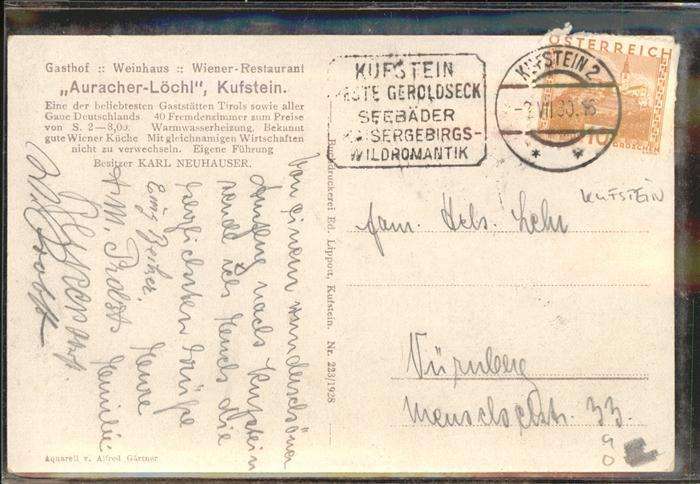 Gasthof :: Weinhaus :: Wiener-Restaurant
„Auracher-Löchl", Kufstein.
Eine der beliebtesten Gaststätten Tirols sowie aller
Gaue Deutschlands. 40 Fremdenzimmer zum Preise
von S. 2—8,00. Warmwasserheizung. Bekannt
gute Wiener Küche Mit gleichnamigen Wirtschaften
nicht zu verwechseln. Eigene Führung
Besitzer KARL NEUHAUSER.
KUFSTEIN
FESTE GEROLDSECK
SEEBÄDER
KAISERGEBIRGS-
WILDROMANTIK
KUFSTEIN 2
VII.30.
ÖSTERREICH
10
GROSCHEN
KUFSTEIN
Von einem wunderschönen
Ausflug nach Kufstein
sende ich Euch die
herzlichsten Grüße
Familie
Buchdruckerei Ed. Lippott, Kufstein. Nr. 223/1928
Fam. Lehr
Nürnberg
33
90
Aquarell v. Alfred Gärtner